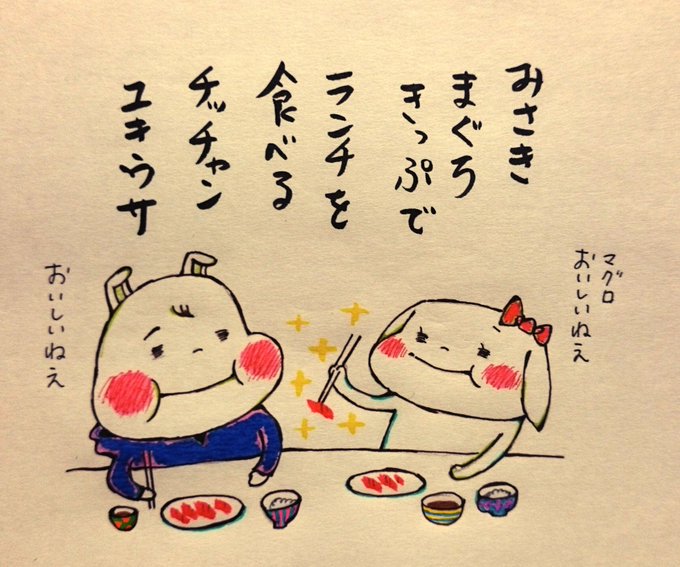 みさき
まぐろ
きっぷで
ランチを
食べる
チッチャン
ユキウサ
マグロ
おいしいねえ
おいしいねえ